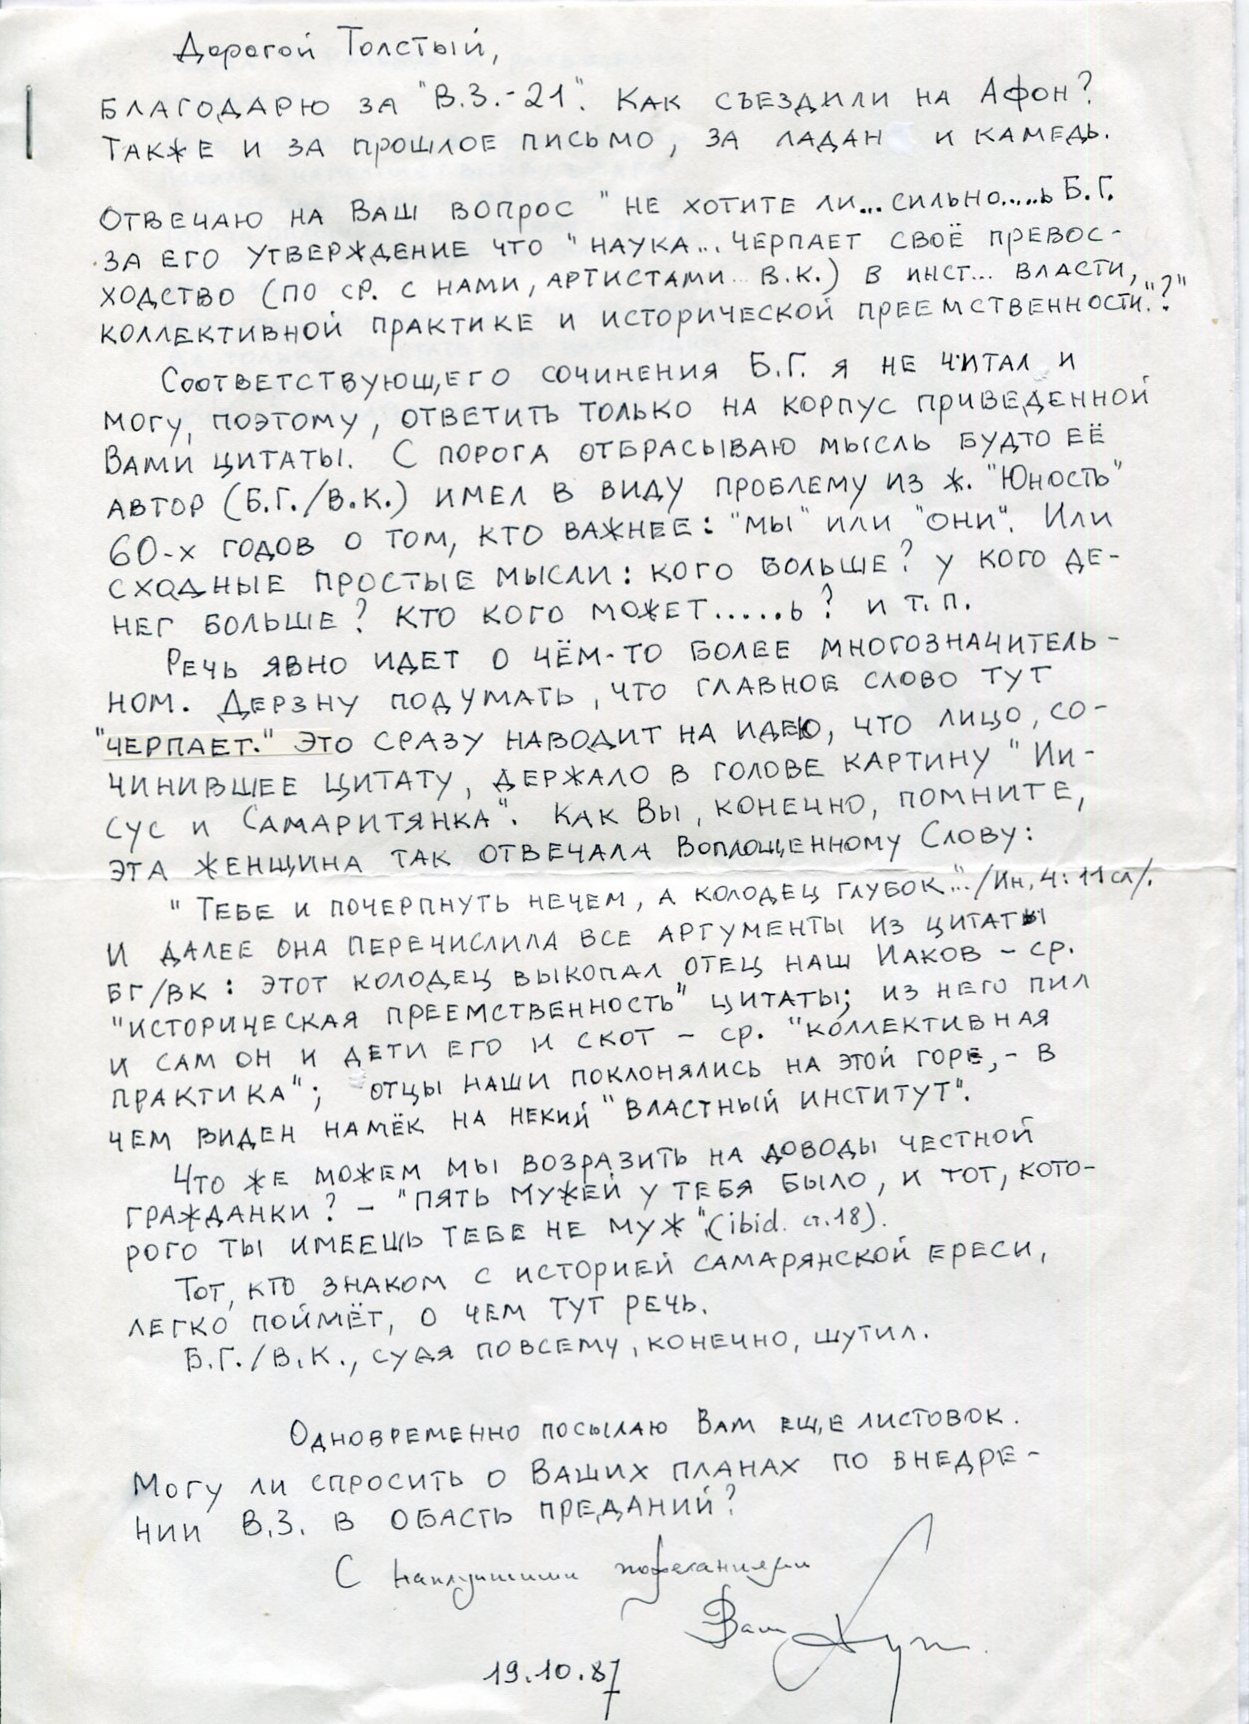 Дорогой Толстый,
Благодарю за "В.З.-21". Как съездили на Афон?
Также и за прошлое письмо, за ладан и камедь.
Отвечаю на Ваш вопрос "не хотите ли... сильно.....ь Б.Г.
за его утверждение что "наука... черпает своё превос-
ходство (по ср. с нами, артистами .. В.К.) в инст... власти,
коллективной практике и исторической преемственности."?"
Соответствующего сочинения Б.Г. я не читал и
могу, поэтому, ответить только на корпус приведенной
Вами цитаты. С порога отбрасываю мысль будто её
автор (Б.Г./В.К.) имел в виду проблему из ж. "Юность"
60-х годов о том, кто важнее: "мы" или "они". Или
сходные простые мысли: кого больше? у кого де-
нег больше? Кто кого может......ь? и т.п.
Речь явно идет о чём-то более многозначитель-
ном. Дерзну подумать, что главное слово тут
"черпает." Это сразу наводит на идею, что лицо, со-
чинившее цитату, держало в голове картину "Ии-
сус и Самаритянка". Как Вы, конечно, помните,
эта женщина так отвечала Воплощенному Слову:
"Тебе и почерпнуть нечем, а колодец глубок..." /Ин, 4: 11 сл/.
И далее она перечислила все аргументы из цитаты
БГ/ВК: этот колодец выкопал отец наш Иаков – ср.
"историческая преемственность" цитаты; из него пил
и сам он и дети его и скот – ср. "коллективная
практика"; отцы наши поклонялись на этой горе, – в
чем виден намёк на некий "властный институт".
Что же можем мы возразить на доводы честной
гражданки? – "пять мужей у тебя было, и тот, кото-
рого ты имеешь тебе не муж". (ibid. ст. 18).
Тот, кто знаком с историей самарянской ереси,
легко поймёт, о чем тут речь.
Б.Г./В.К., судя повсему, конечно, шутил.
Одновременно посылаю Вам еще листовок.
Могу ли спросить о Ваших планах по внедре-
нии В.З. в обасть преданий?
С наилучшими пожеланиями
Ваш
19.10.87